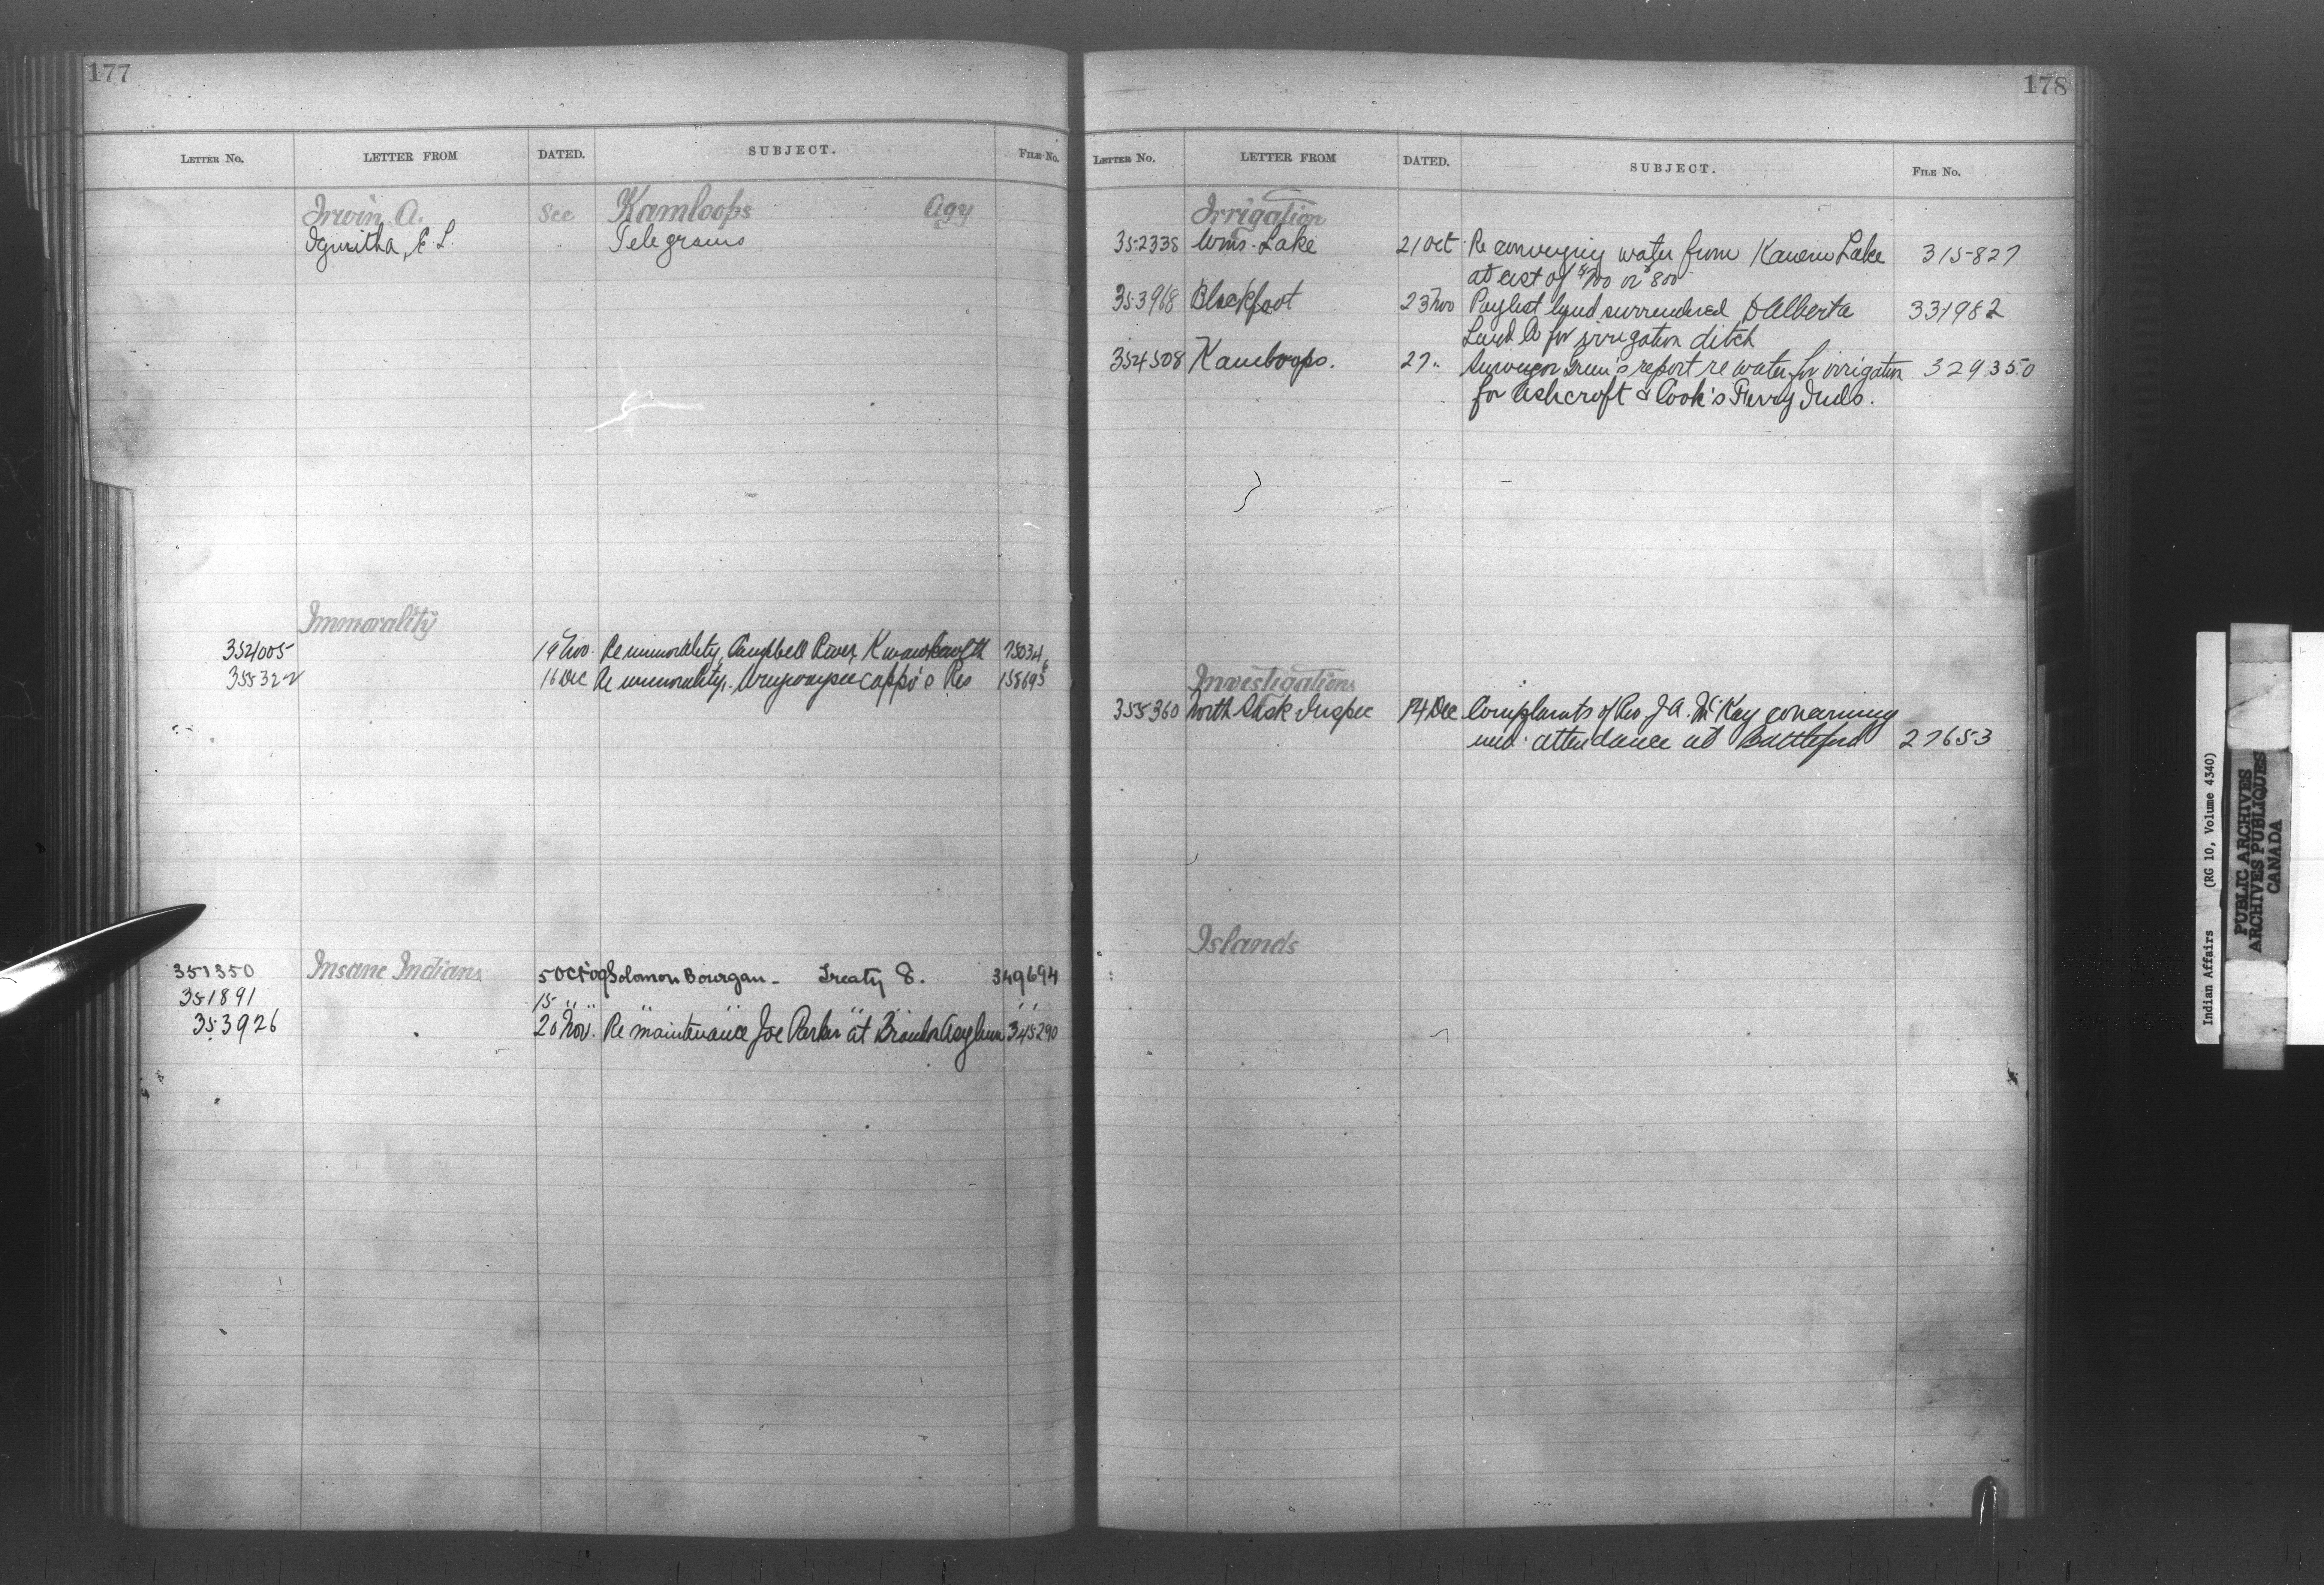 177
LETTER No. LETTER FROM DATED. SUBJECT. FILE No.
Irwin A. See Kamloops Agy
E. L. " Telegrams
Immorality
354005 19 Nov. Re immorality, Campbell River, Kwawkewlth 75034
355322 16 Dec Re immorality, Waywayseecappo's Res 158695
351350 Insane Indians 5 Oct 09 Solomon Bourgan - Treaty 8. 349694
351891 15 " " " " " " "
353926 20 Nov. Re maintenance Joe Parker at Brandon Asylum 345290
178
LETTER No. LETTER FROM DATED. SUBJECT. FILE No.
Irrigation
352338 Wms. Lake 21 Oct Re conveying water from Lake 315827
at cost of $700 or $800
353968 Blackfoot 23 Nov Paylist land surrendered to Alberta 331982
Land Co for irrigation ditch
354508 Kamloops. 27 " Surveyor Green's report re water for irrigation 329350
for Ashcroft & Cook's Ferry Inds.
Investigations
355360 North Sask Inspec 14 Dec Complaints of Rev. J A. McKay concerning
med. attendance at Battleford 27653
Islands
Indian Affairs (RG 10, Volume 4340)
PUBLIC ARCHIVES
ARCHIVES PUBLIQUES
CANADA